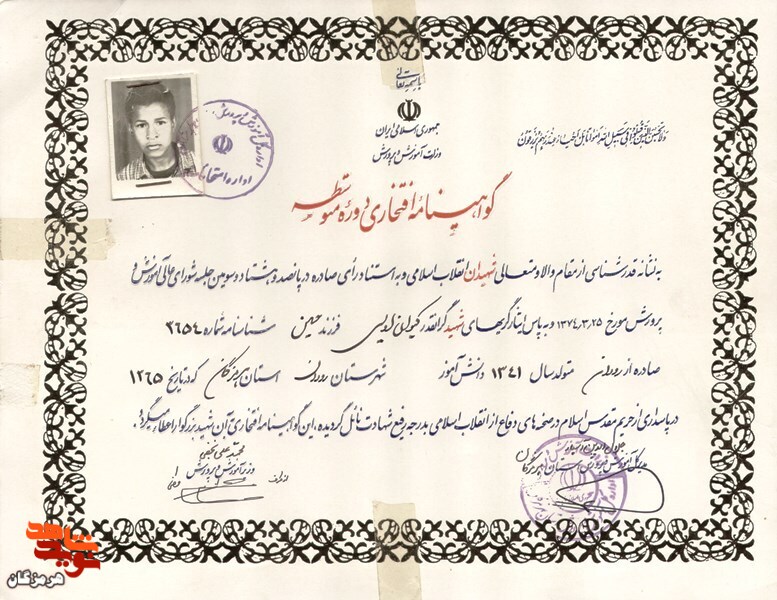 باسمه تعالی
جمهوری اسلامی ایران
وزارت آموزش و پرورش
ولا تحسبن الذین قتلوا فی سبیل الله امواتا بل احیاء عند ربهم یرزقون
گواهینامه افتخاری دوره متوسطه
به نشانه قدرشناسی از مقام والا و متعالی شهیدان انقلاب اسلامی و به استناد رأی صادره در پانصد و هشتاد و سومین جلسه شورای عالی آموزش و
پرورش مورخ ۱۳۷۴٫۳٫۲۵ و به پاس ایثارگریهای شهید گرانقدر فرزند حسین شناسنامه شماره ۲۶۵۴
صادره از رودان متولد سال ۱۳۴۱ دانش آموز شهرستان رودان استان هرمزگان که در تاریخ ۱۳۶۵
در پاسداری از حریم مقدس اسلام در صحنه های دفاع از انقلاب اسلامی بدرجه رفیع شهادت نائل گردیده، این گواهینامه افتخاری آن شهید بزرگوار اعطاء میگردد.
وزیر آموزش و پرورش
از طرف
مدیرکل آموزش و پرورش استان هرمزگان
اداره کل آموزش و پرورش
اداره امتحانات
نوید شاهد
هرمزگان